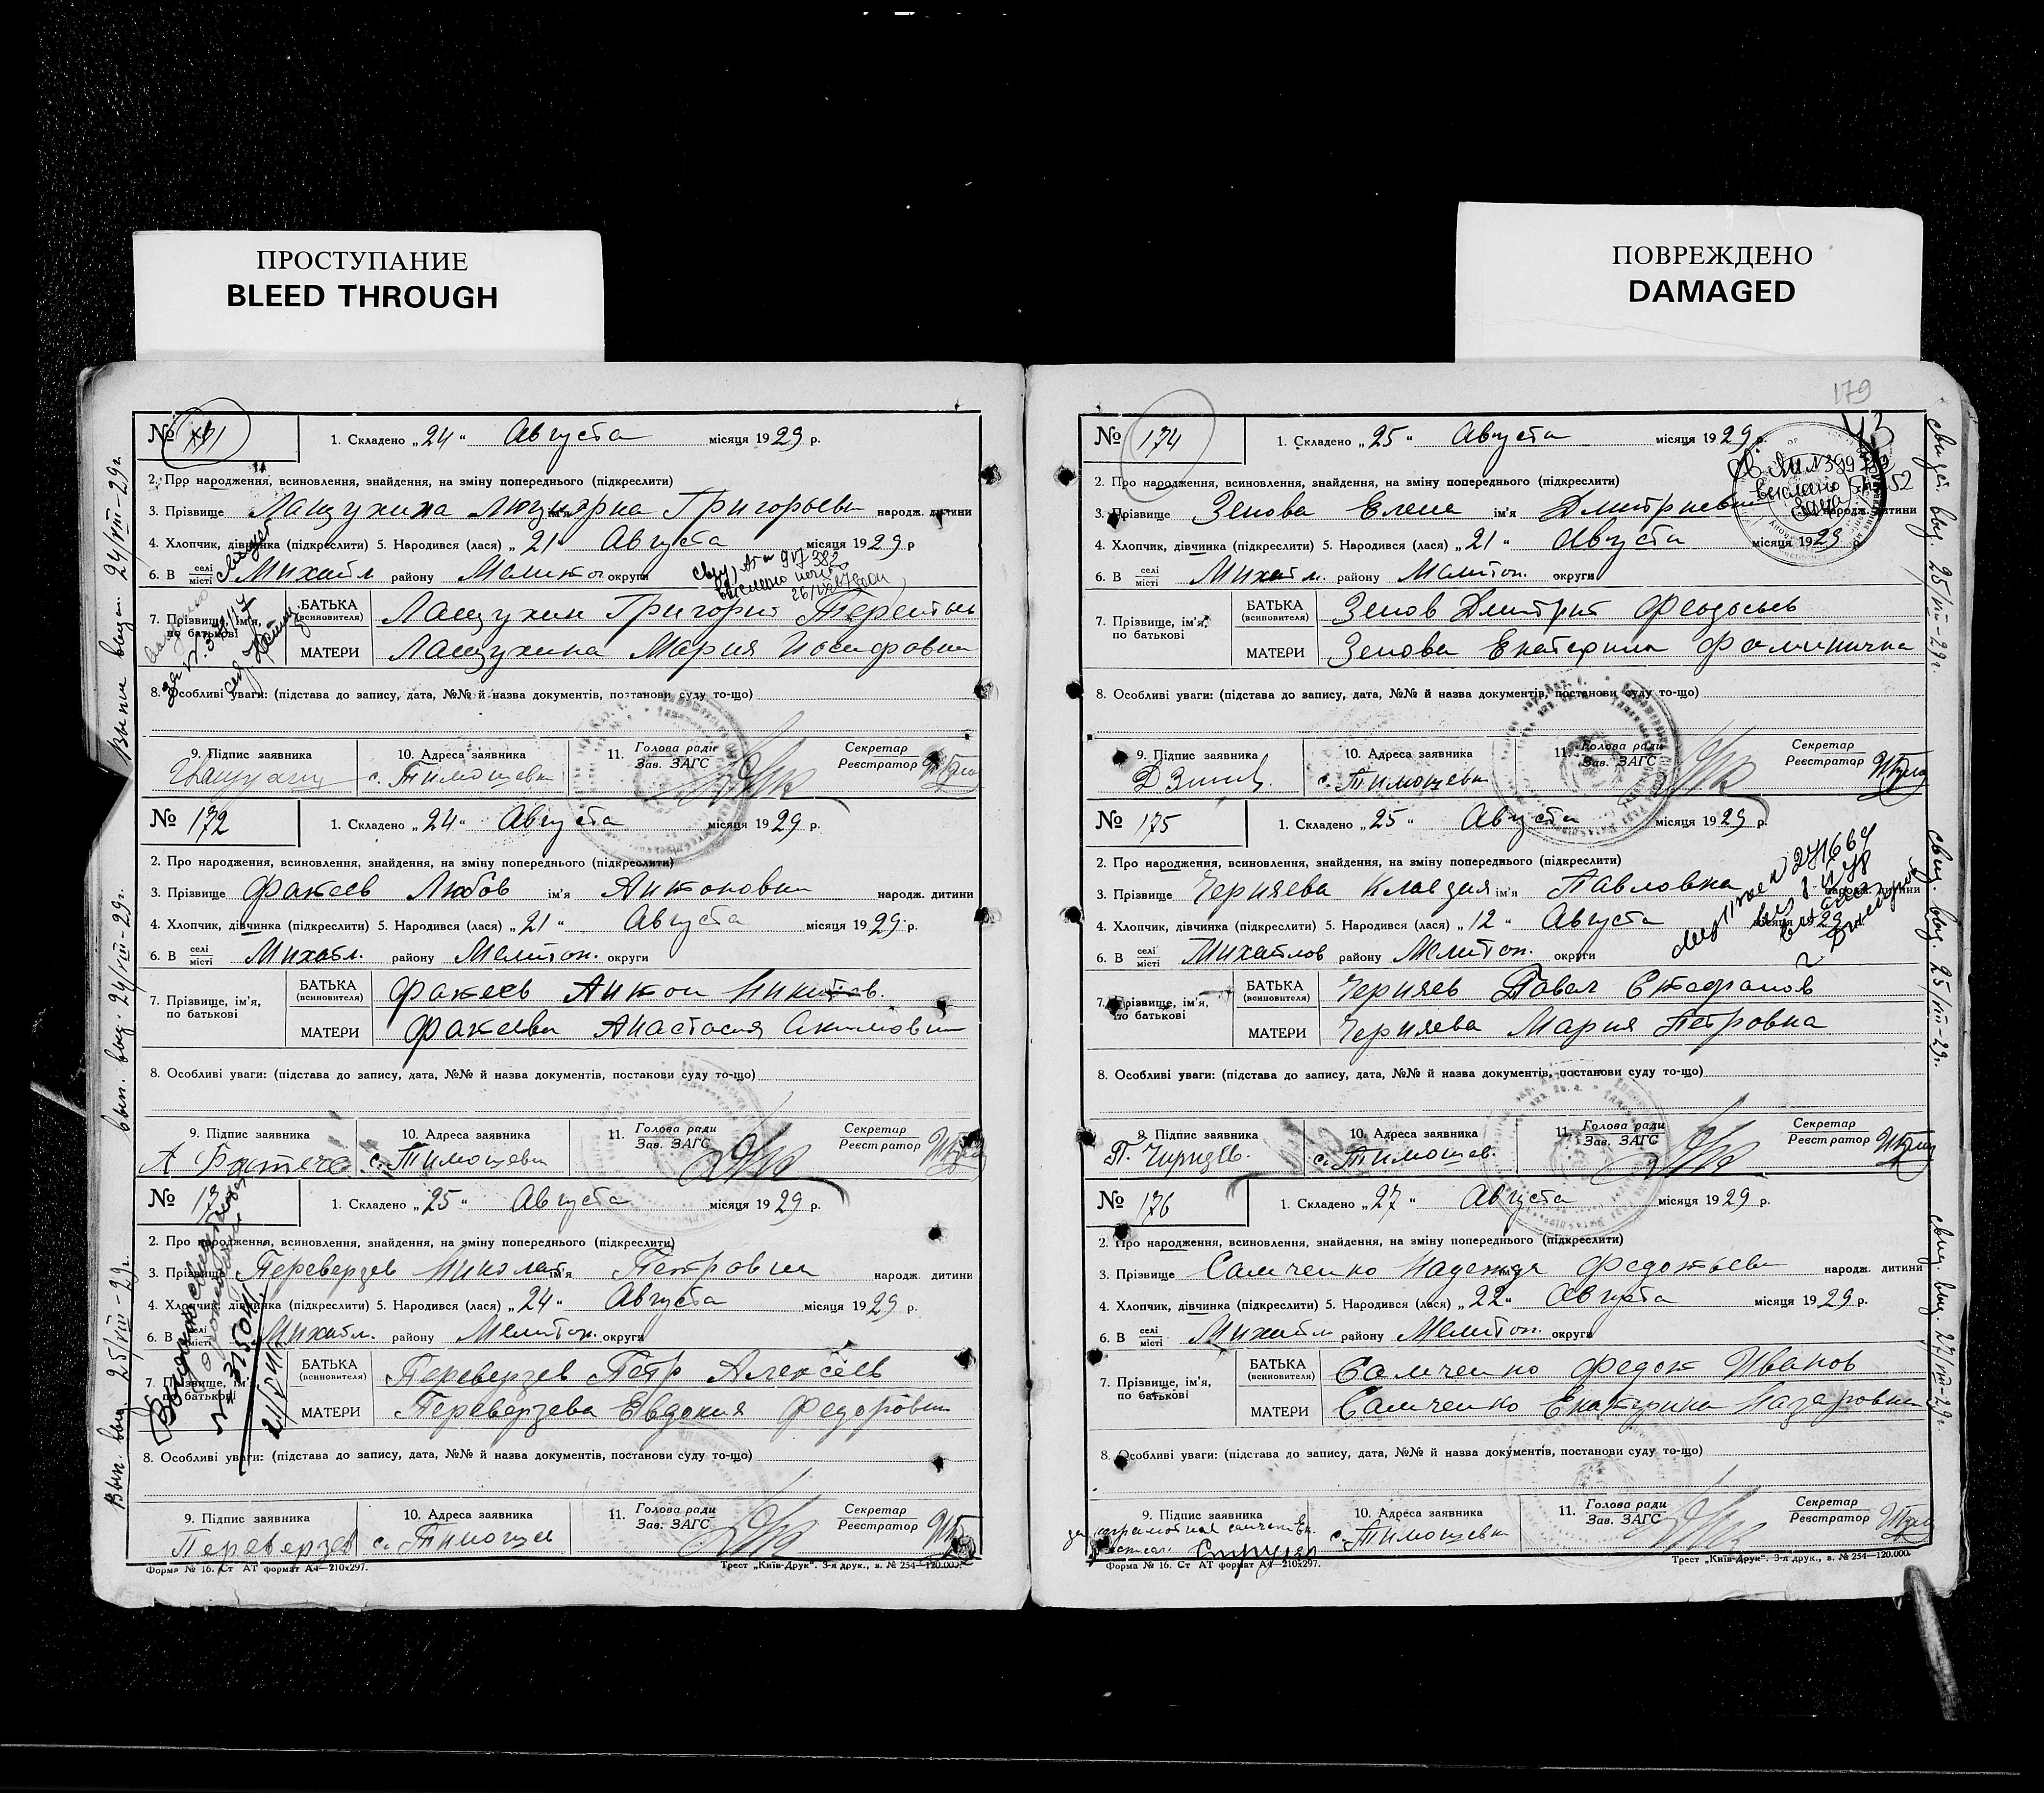 ПРОСТУПАНИЕ
BLEED THROUGH
ПОВРЕЖДЕНО
DAMAGED
№ 171
1. Складено „24“ Августа місяця 1929 р.
2. Про народження, всиновлення, знайдення, на зміну попереднього (підкреслити)
3. Прізвище Лащухина ім'я Григорьевн народж. дитини
4. Хлопчик, дівчинка (підкреслити) 5. Народився (лася) „21“ Августа місяця 1929 р
6. В селі місті Михайл. району Мелитоп. округи
7. Прізвище, ім'я, по батькові
БАТЬКА (всиновителя) Лащухин Григорий Терентьев
МАТЕРИ Лащухина Мария Иосифовн
8. Особливі уваги: (підстава до запису, дата, №№ й назва документів, постанови суду то-що)
9. Підпис заявника
10. Адреса заявника с. Тимошевк
11. Голова ради Зав. ЗАГС
Секретар Реєстратор
Выпис выдан. 24/VIII-29г.
№ 172
1. Складено „24“ Августа місяця 1929 р.
2. Про народження, всиновлення, знайдення, на зміну попереднього (підкреслити)
3. Прізвище Факеев Любов ім'я Антоновн народж. дитини
4. Хлопчик, дівчинка (підкреслити) 5. Народився (лася) „21“ Августа місяця 1929 р.
6. В селі місті Михайл. району Мелитоп. округи
7. Прізвище, ім'я, по батькові
БАТЬКА (всиновителя) Факеев Антон Никитов.
МАТЕРИ Факеева Анастасия Акимовн
8. Особливі уваги: (підстава до запису, дата, №№ й назва документів, постанови суду то-що)
9. Підпис заявника
10. Адреса заявника с. Тимошевк
11. Голова ради Зав. ЗАГС
Секретар Реєстратор
вып. выд. 24/VIII-29г.
№ 173
1. Складено „25“ Августа місяця 1929 р.
2. Про народження, всиновлення, знайдення, на зміну попереднього (підкреслити)
3. Прізвище Переверзев Николай ім'я Петрович народж. дитини
4. Хлопчик, дівчинка (підкреслити) 5. Народився (лася) „24“ Августа місяця 1929 р.
6. В селі місті Михайл. району Мелитоп. округи
7. Прізвище, ім'я, по батькові
БАТЬКА (всиновителя) Переверзев Петр Алексеев
МАТЕРИ Переверзева Евдокия Федоровн
8. Особливі уваги: (підстава до запису, дата, №№ й назва документів, постанови суду то-що)
9. Підпис заявника Переверзев
10. Адреса заявника с. Тимошев
11. Голова ради Зав. ЗАГС
Секретар Реєстратор
вып. выд. 25/VIII-29г.
Форма № 16. Ст АТ формат А4—210x297.
Трест „Київ-Друк". 3-я друк., в. № 254—120.000.
179
№ 174
1. Складено „25“ Августа місяця 1929 р.
2. Про народження, всиновлення, знайдення, на зміну попереднього (підкреслити)
3. Прізвище Зенова Елена ім'я Дмитриевн народж. дитини
4. Хлопчик, дівчинка (підкреслити) 5. Народився (лася) „21“ Августа місяця 1929 р.
6. В селі місті Михайл. району Мелитоп. округи
7. Прізвище, ім'я, по батькові
БАТЬКА (всиновителя) Зенов Дмитрий Феодосьев
МАТЕРИ Зенова Екатерина Фоминична
8. Особливі уваги: (підстава до запису, дата, №№ й назва документів, постанови суду то-що)
9. Підпис заявника
10. Адреса заявника с. Тимошевк
11. Голова ради Зав. ЗАГС
Секретар Реєстратор
свидет. выд. 25/VIII-29г.
№ 175
1. Складено „25“ Августа місяця 1929 р.
2. Про народження, всиновлення, знайдення, на зміну попереднього (підкреслити)
3. Прізвище Черняева Клавдия ім'я Павловна народж. дитини
4. Хлопчик, дівчинка (підкреслити) 5. Народився (лася) „12“ Августа місяця 1929
6. В селі місті Михайлов району Мелитоп. округи
7. Прізвище, ім'я, по батькові
БАТЬКА (всиновителя) Черняев Павел Стефанов
МАТЕРИ Черняева Мария Петровна
8. Особливі уваги: (підстава до запису, дата, №№ й назва документів, постанови суду то-що)
9. Підпис заявника
10. Адреса заявника с. Тимошев.
11. Голова ради Зав. ЗАГС
Секретар Реєстратор
свид. выд. 25/VIII-29г.
№ 176
1. Складено „27“ Августа місяця 1929 р.
2. Про народження, всиновлення, знайдення, на зміну попереднього (підкреслити)
3. Прізвище Самченко Надежда ім'я Федотьевн народж. дитини
4. Хлопчик, дівчинка (підкреслити) 5. Народився (лася) „22“ Августа місяця 1929 р.
6. В селі місті Михайл району Мелитоп. округи
7. Прізвище, ім'я, по батькові
БАТЬКА (всиновителя) Самченко Федот Иванов
МАТЕРИ Самченко Екатерина Назаровн
8. Особливі уваги: (підстава до запису, дата, №№ й назва документів, постанови суду то-що)
9. Підпис заявника
10. Адреса заявника с. Тимошевк
11. Голова ради Зав. ЗАГС
Секретар Реєстратор
свид. выд. 27/VIII-29г.
Форма № 16. Ст АТ формат А4—210x297.
Трест „Київ-Друк". 3-я друк., в. № 254—120.000.